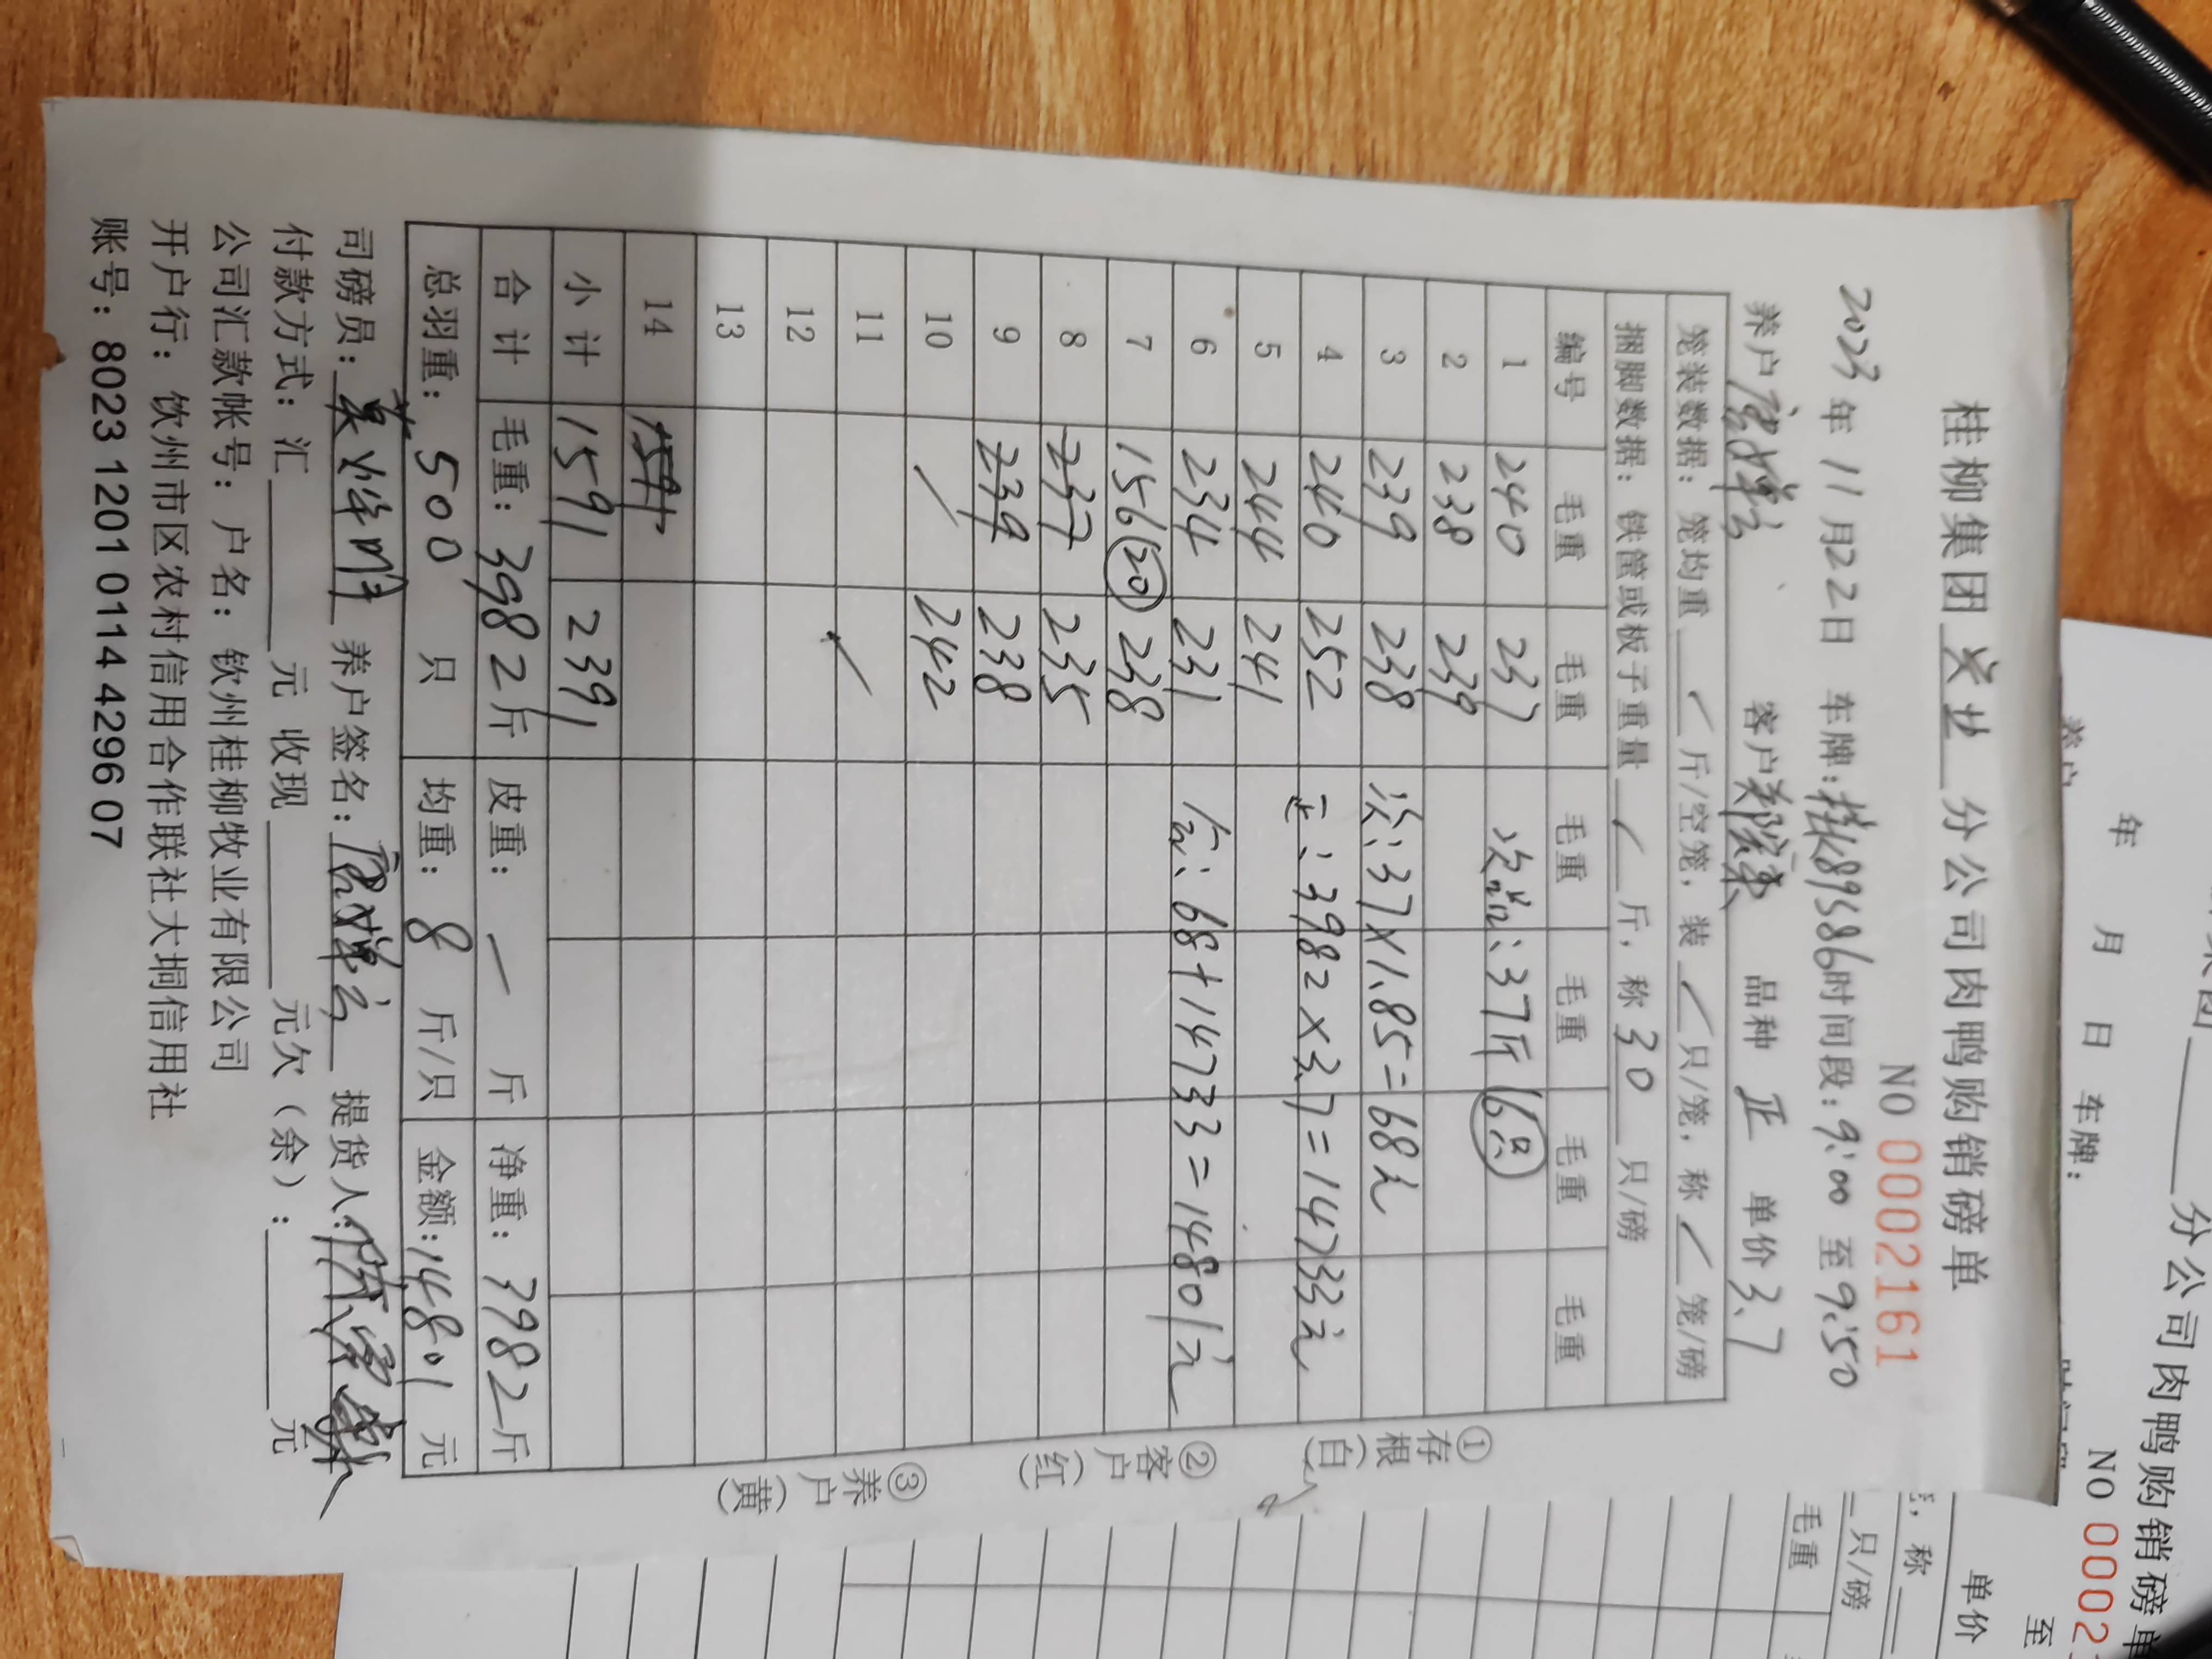 桂柳集团 分公司肉鸭购销磅单
NO 0002161
2023年11月22日 车牌:桂K89S86时间段:9:00至9:50
养户 客户 品种 正 单价 3.7
笼装数据:笼均重 / 斤/空笼,装 / 只/笼,称 / 笼/磅
捆脚数据:铁管或板子重量 / 斤,称 30 只/磅
编号 毛重 毛重 毛重 毛重 毛重 毛重
1 240 237 次品:37斤 (6只)
2 238 239
3 239 238 次:37×1.85=68元
4 240 252 正:3982×3.7=14733元
5 244 241
6 234 231 合:68+14733=14801元
7 156(20) 238
8 237 235
9 239 238
10 / 242
11 /
12
13
14 1591
小计 1591 2391
合计 毛重:3982斤 皮重:— 斤 净重:3982斤
总羽重:500 只 均重:8 斤/只 金额:14801元
司磅员: 养户签名: 提货人:
付款方式:汇 元 收现 元欠(余): 元
公司汇款帐号:户名:钦州桂柳牧业有限公司
开户行:钦州市区农村信用合作联社大垌信用社
账号:8023 1201 0114 4296 07
①存根(白)
②客户(红)
③养户(黄)
分公司肉鸭购销磅单
NO 0002
年 月 日 车牌: 至
养户 单价
称
只/磅
毛重